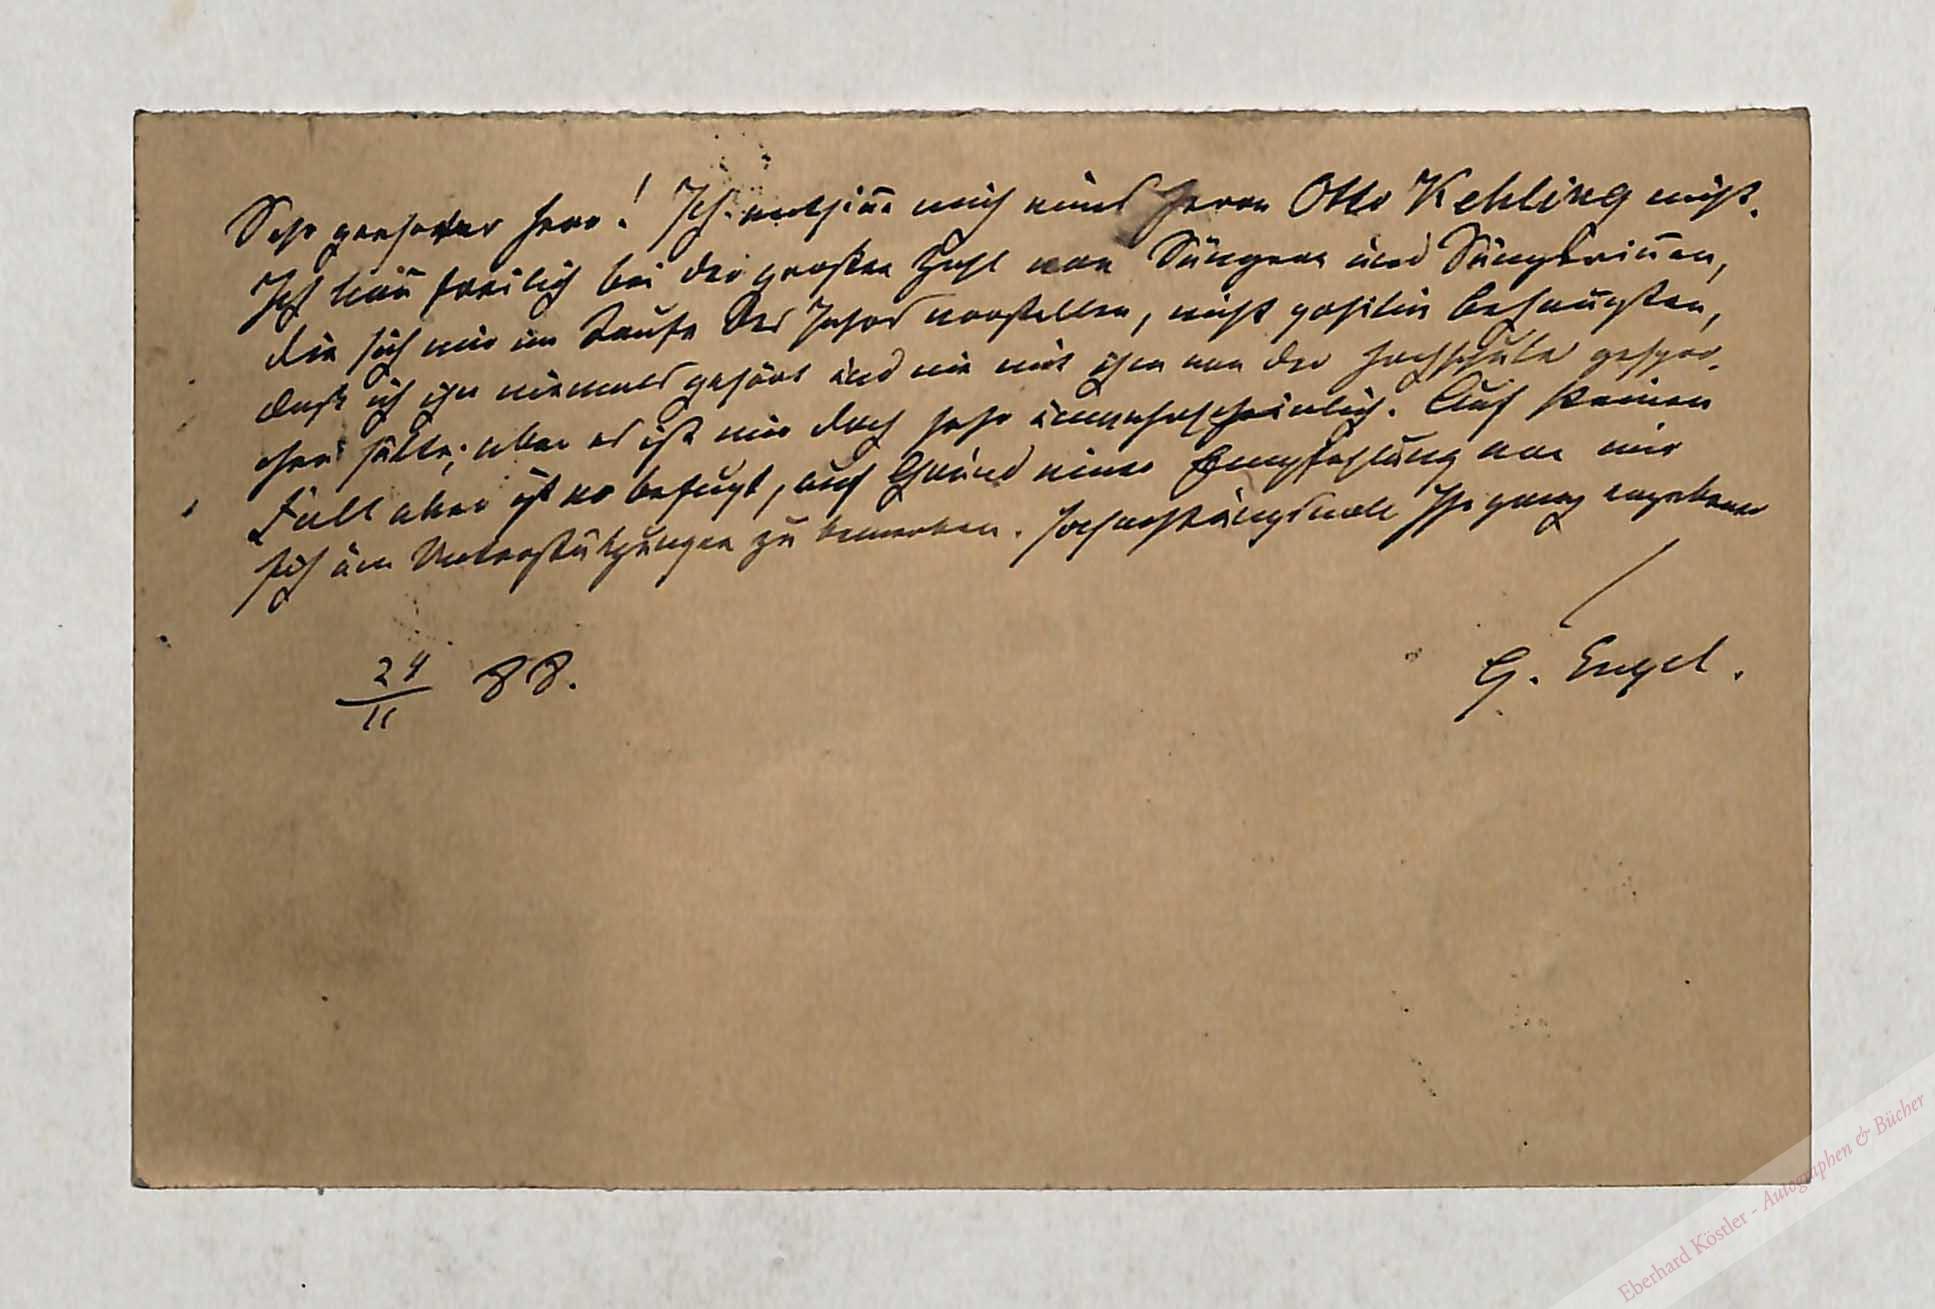 Sehr geehrter Herr! Ich entsinne mich eines Herrn Otto Kehling nicht.
Ich kann freilich bei der großen Zahl von Sängern und Sängerinnen,
die sich mir im Laufe des Jahres vorstellen, nicht positiv behaupten,
daß ich ihn niemals gehört und nie mit ihm von der Hochschule gespro-
chen hätte; aber es ist mir doch sehr unwahrscheinlich. Auf keinen
Fall aber ist er befugt, auf Grund einer Empfehlung von mir
sich um Unterstützungen zu bewerben. Hochachtungsvoll Ihr ganz ergebener
G. Engel.
24/11 88.
Eberhard Köstler - Autographen & Bücher